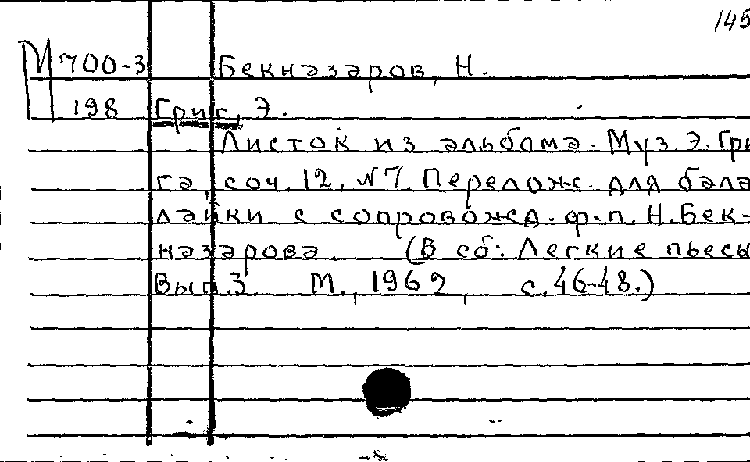 145
М700-3 Бекназаров, Н.
198 Григ, Э.
Листок из альбома. Муз Э. Гри
га, соч. 12, №7. Перелож. для бала
лайки с сопровожд. ф-п. Н. Бек-
назарова. (В сб: Легкие пьесы
Вып.3 М., 1962, с. 46-48.)